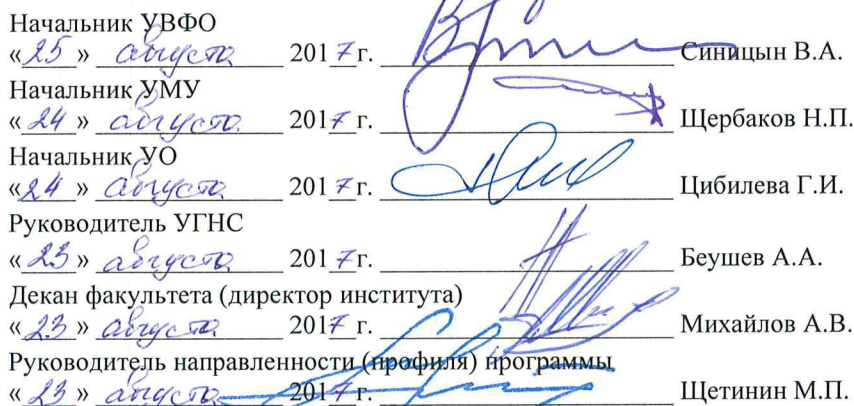 Начальник УВФО
«25» августа 2017г. Синицын В.А.
Начальник УМУ
«24» августа 2017 г. Щербаков Н.П.
Начальник УО
«24» августа 2017 г. Цибилева Г.И.
Руководитель УГНС
«23» августа 2017г. Беушев А.А.
Декан факультета (директор института)
«23» августа 2017 г. Михайлов А.В.
Руководитель направленности (профиля) программы
«23» августа 2017г. Щетинин М.П.